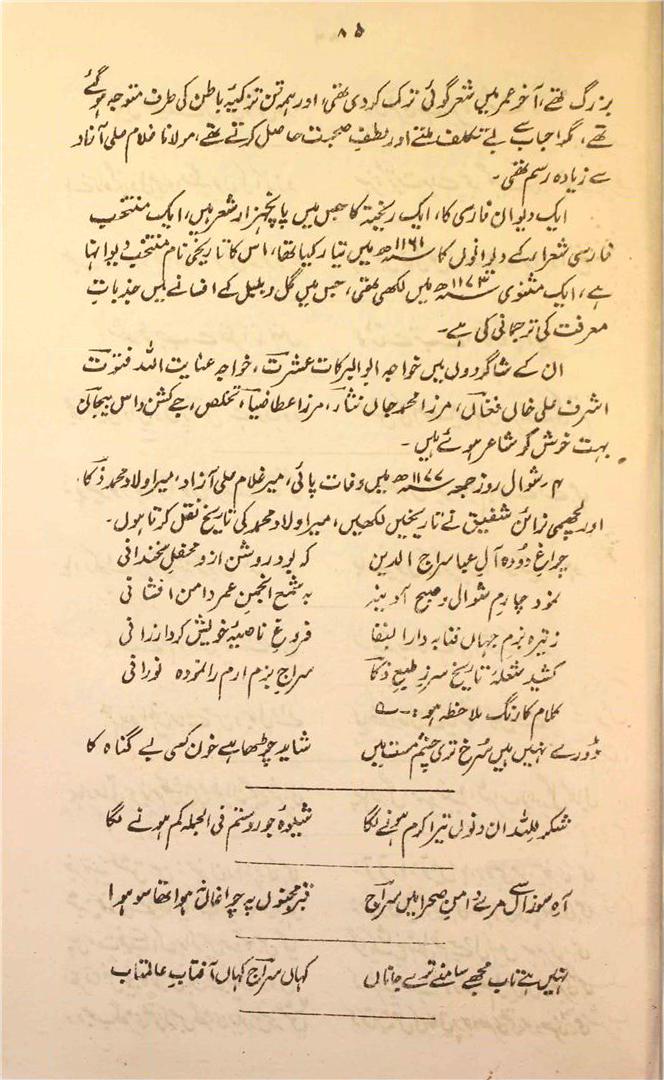 ۸۵
بزرگ تھے، آخر عمر میں شعر گوئی ترک کر دی تھی، اور ہمہ تن تزکیۂ باطن کی طرف متوجہ ہو گئے
تھے، مگر احباب سے بے تکلف ملتے اور لطفِ صحبت حاصل کرتے تھے، مولانا غلام علی آزاد
سے زیادہ رسم تھی۔
ایک دیوان فارسی کا، ایک ریختہ کا جس میں پانچہزار شعر ہیں، ایک منتخب
فارسی شعراء کے دیوانوں کا ۱۱۶۱ھ میں تیار کیا تھا، اس کا تاریخی نام منتخب دیوانہا
ہے، ایک مثنوی ۱۱۷۳ھ میں لکھی تھی، جس میں گل و بلبل کے افسانے میں جذباتِ
معرفت کی ترجمانی کی ہے۔
ان کے شاگردوں میں خواجہ ابوالبرکات عشرت، خواجہ عنایت اللہ فتوت
اشرف علی خاں فغاں، مرزا محمد جاں نثار، مرزا عطا ضیاء تخلص، جے کشن داس بیجاں
بہت خوش گو شاعر ہوئے ہیں۔
۴۔ شوال روز جمعہ ۱۱۷۷ھ میں وفات پائی، میر غلام علی آزاد، میر اولاد محمد ذکا،
اور لچھمی نرائن شفیق نے تاریخیں لکھیں، میر اولاد محمد کی تاریخ نقل کرتا ہوں۔
چراغِ دودہ آلِ عبا سراج الدین کہ بود روشن ازو محفلِ سخندانی
نمود چارم شوال و صبح آدینہ بہ شمع انجمنِ عمر دامن افشانی
زتیرہ بزمِ جہاں فنا بہ دار البقا فروغِ ناصیۂ خویش کرد ارزانی
کشید شعلۂ تاریخ سر ز طبع ذکا سراج بزم ارم را نمودہ نورانی
کلام کا رنگ ملاحظہ ہو:۔
ڈورے نہیں ہیں سرخ تری چشمِ مست میں شاید چڑھا ہے خون کسی بے گناہ کا
شکر للہ ان دنوں تیرا کرم ہونے لگا شیوۂ جور و ستم فی الجملہ کم ہونے لگا
آہ سوزاں سے مرے دامنِ صحرا میں سراج قبرِ مجنوں پہ چراغاں نہ ہوا تھا سو ہوا
نہیں ہے تاب مجھے سامنے ترے جاناں کہاں سراج کہاں آفتابِ عالمتاب